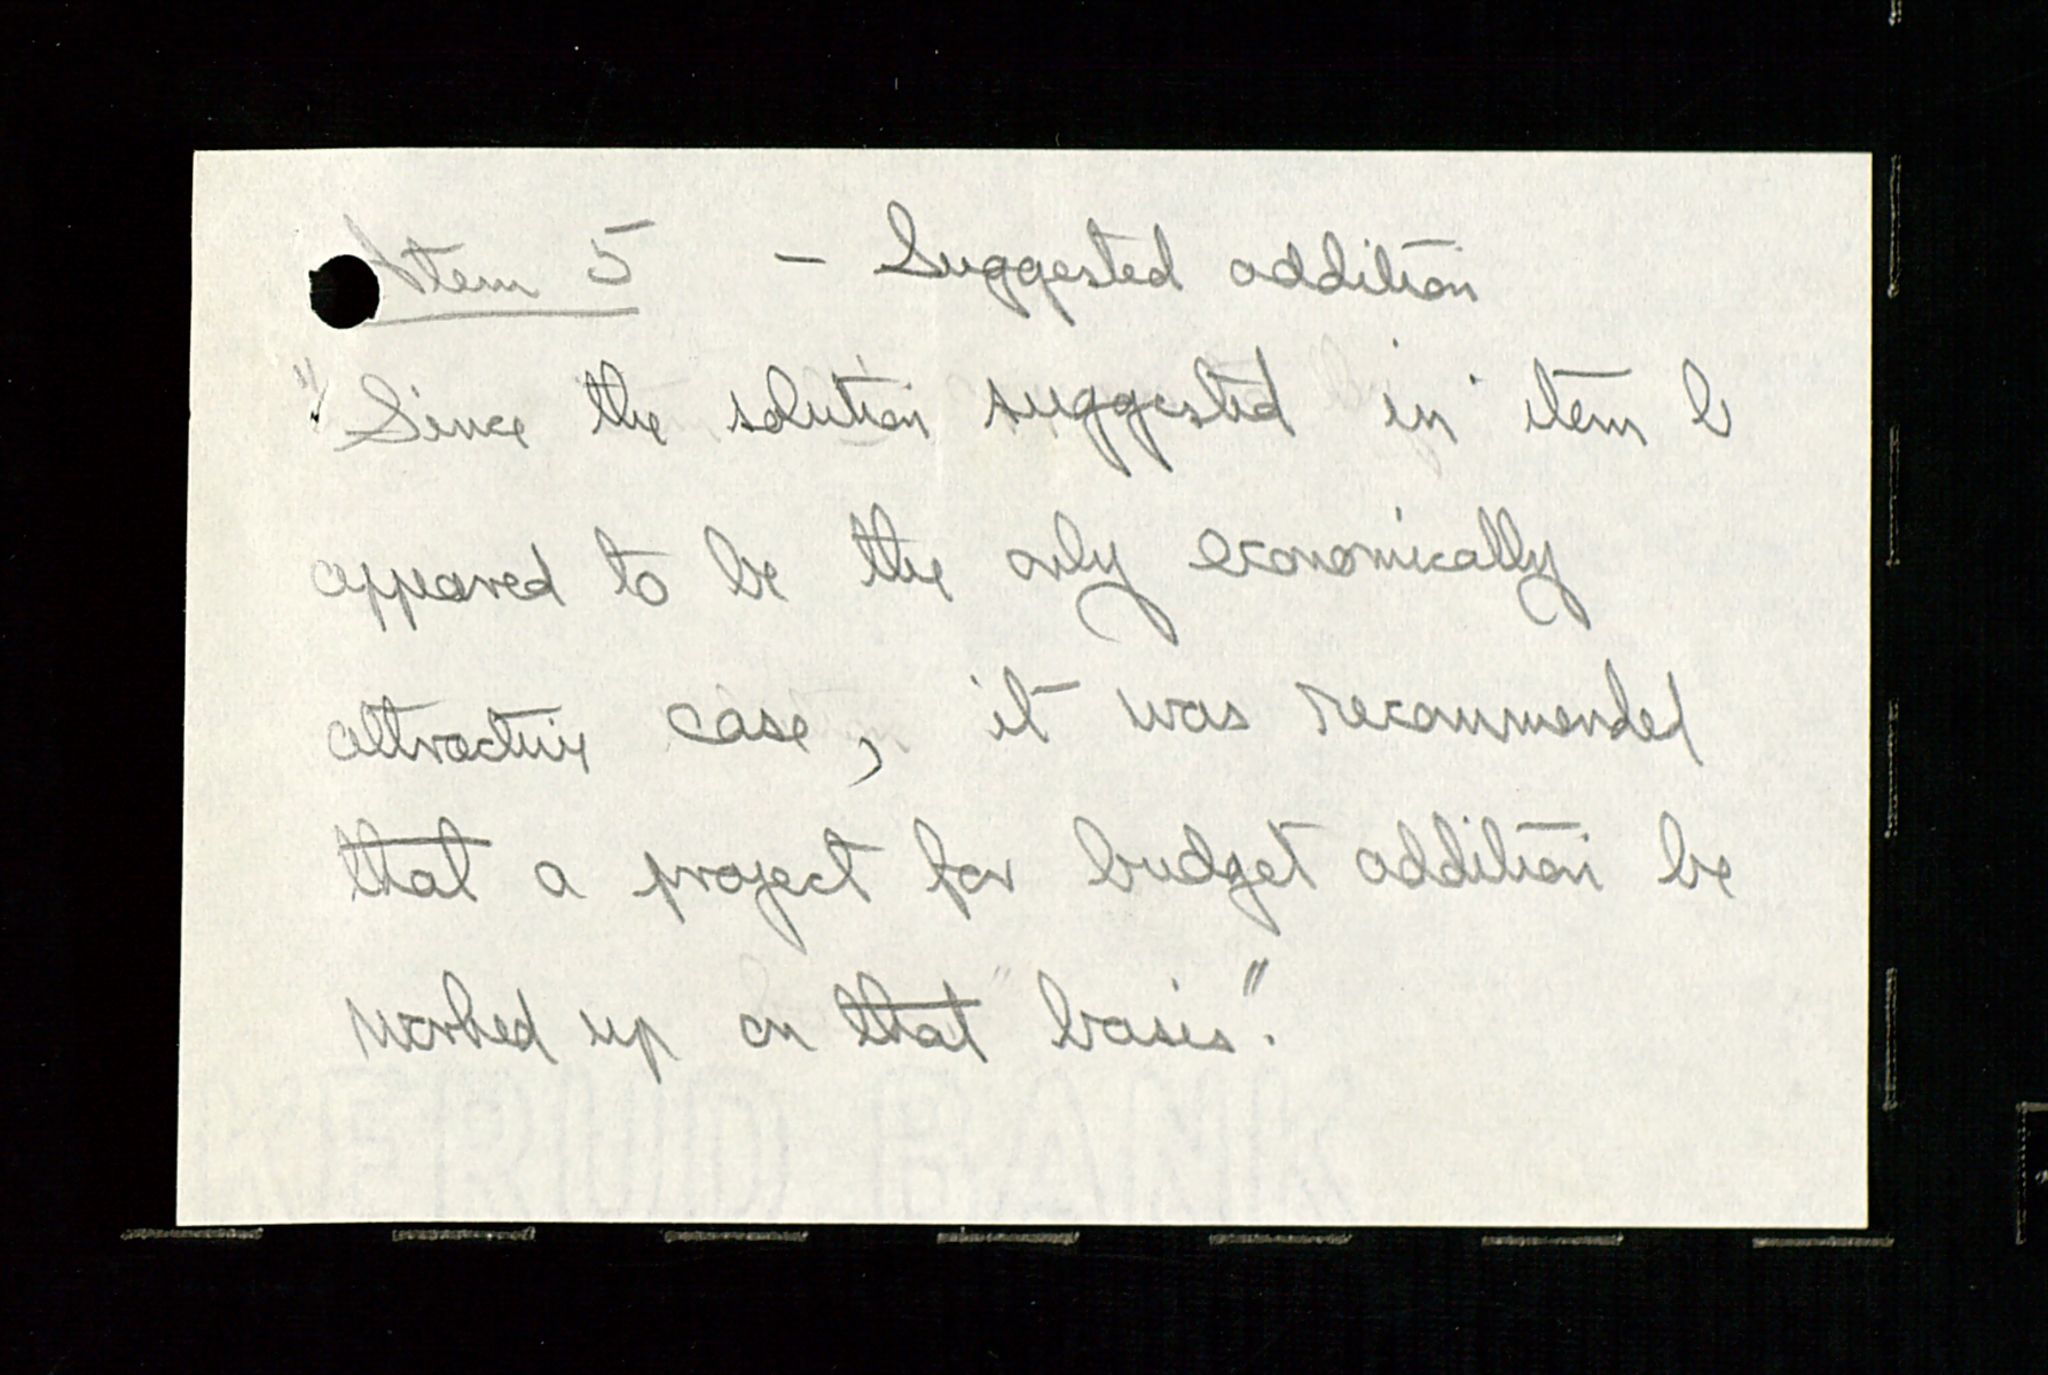 Item 5 - Suggested addition
"Since the solution suggested in item b
appeared to be the only economically
attractive case, it was recommended
that a project for budget addition be
worked up on that basis".